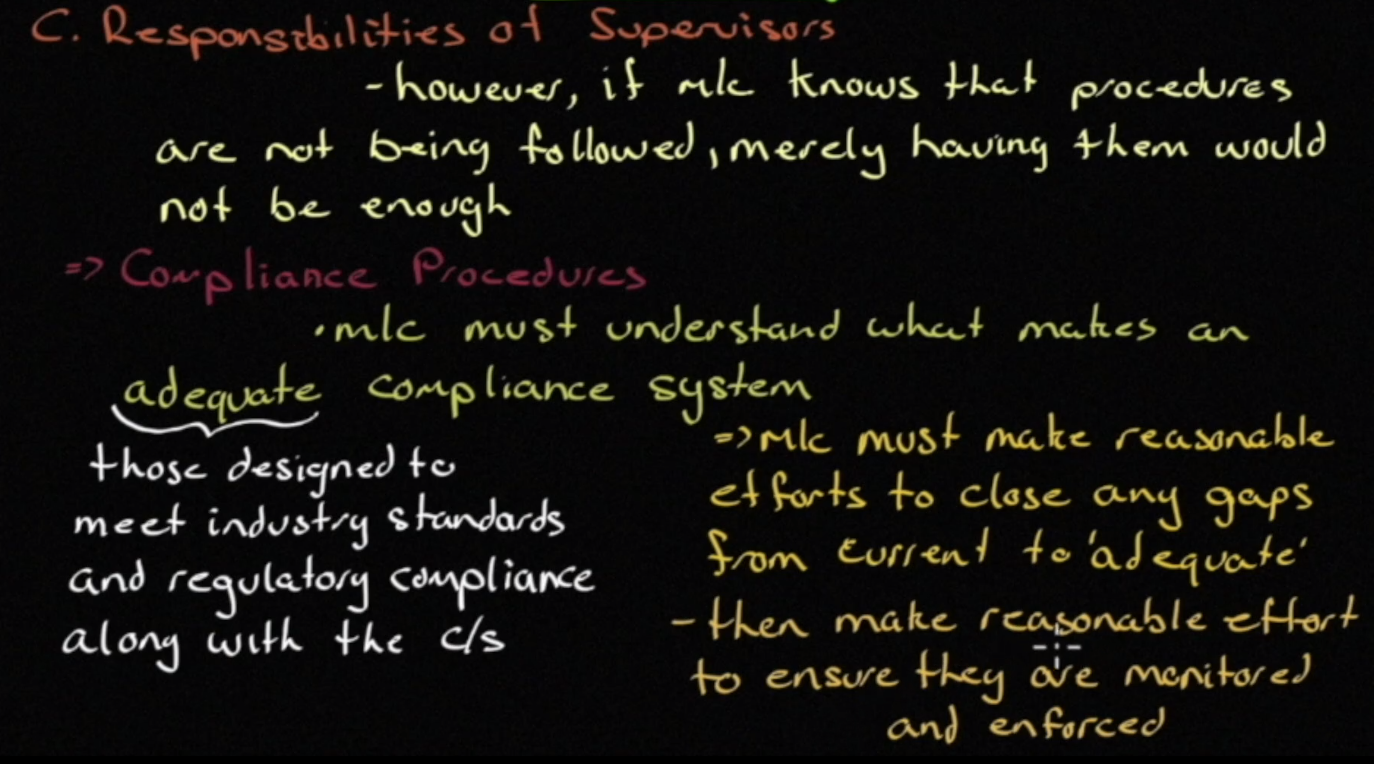 C. Responsibilities of Supervisors
- however, if m/c knows that procedures
are not being followed, merely having them would
not be enough
=> Compliance Procedures
• m/c must understand what makes an
adequate compliance system
those designed to
meet industry standards
and regulatory compliance
along with the c/s
=> m/c must make reasonable
efforts to close any gaps
from current to 'adequate'
- then make reasonable effort
to ensure they are monitored
and enforced